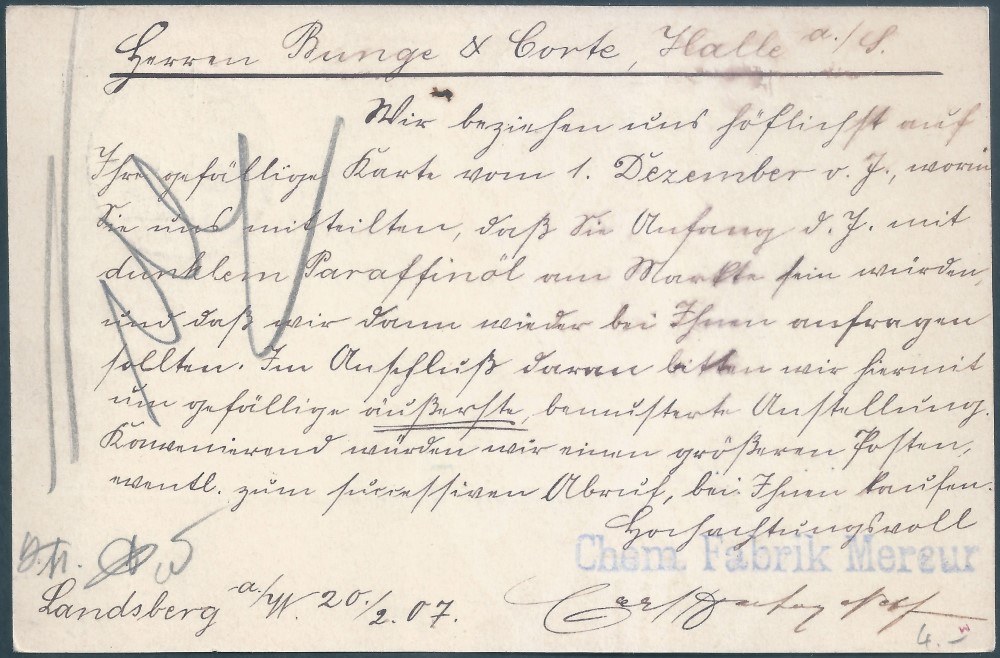 Herren Bunge & Corte, Halle a./S.
Wir beziehen uns höflichst auf
Ihre gefällige Karte vom 1. Dezember v. J., worin
Sie uns mitteilten, daß Sie Anfang d. J. mit
dunklem Paraffinöl am Markte sein würden,
und daß wir dann wieder bei Ihnen anfragen
sollten. Im Anschluß daran bitten wir hiermit
um gefällige äußerste, bemusterte Anstellung.
Konvenierend würden wir einen größeren Posten,
eventl. zum successiven Abruf, bei Ihnen kaufen.
Hochachtungsvoll
Chem Fabrik Mercur
Landsberg a./W. 20./2. 07.
4.-